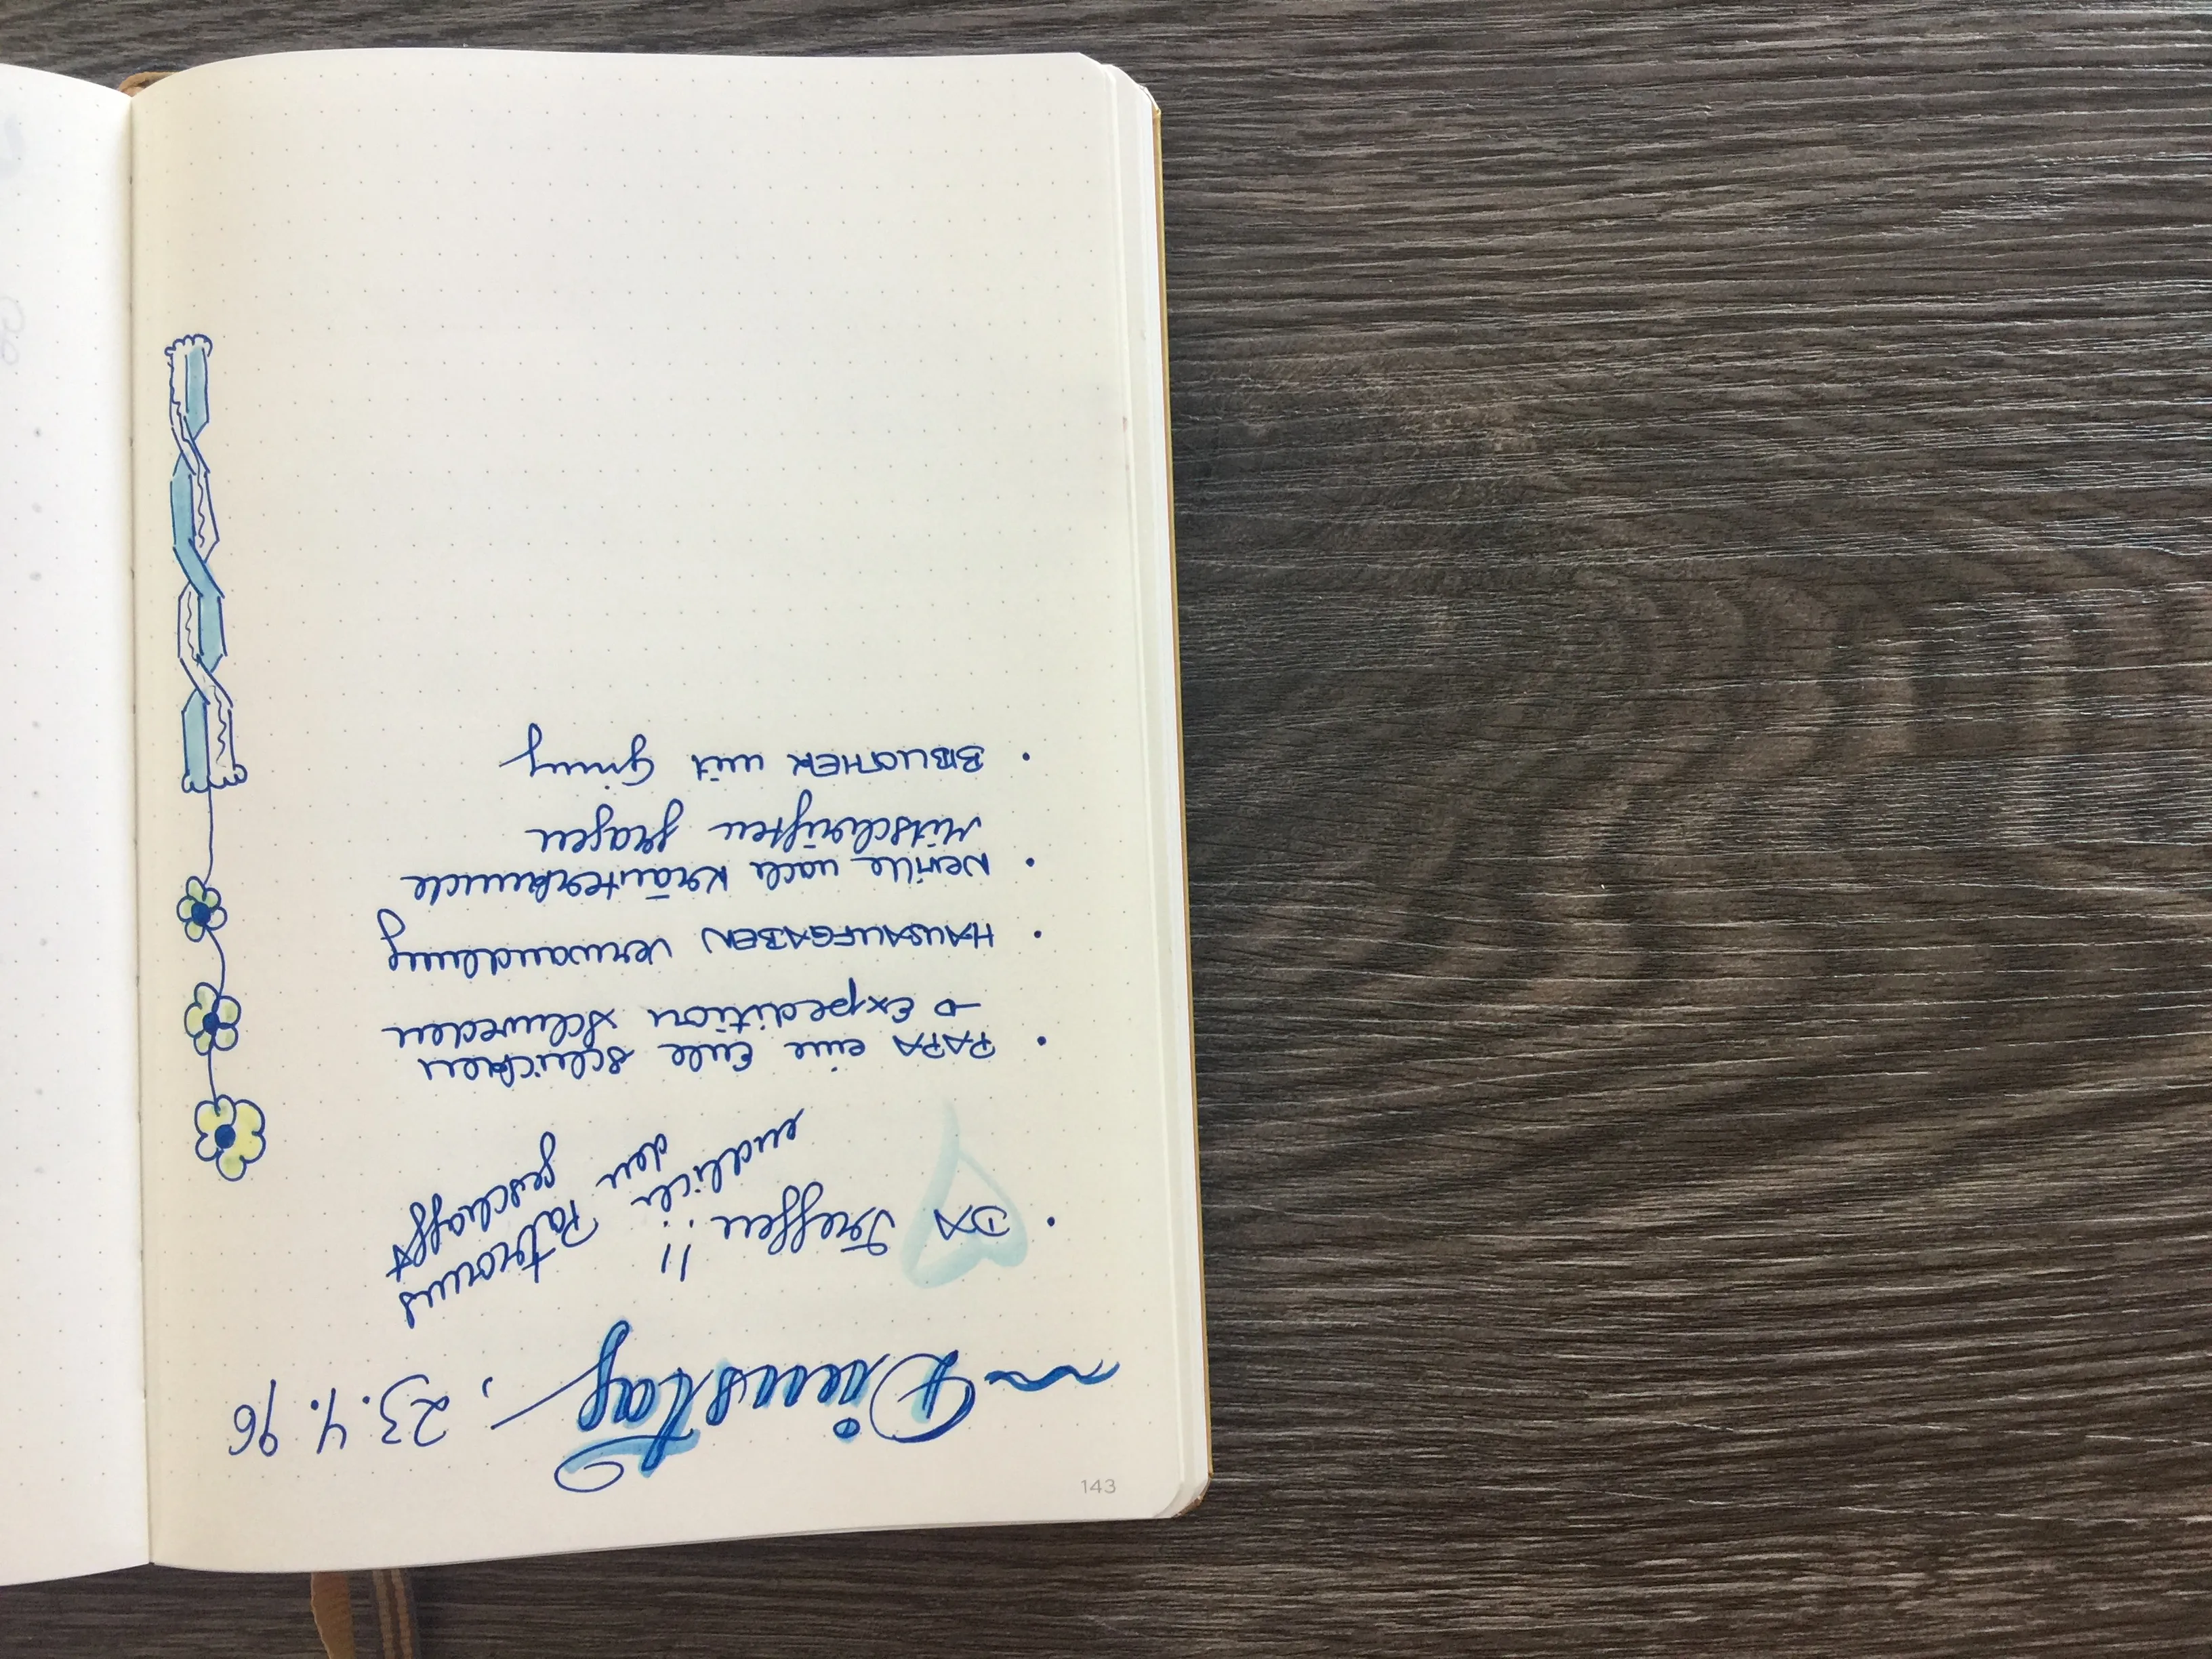 Dienstag, 23.4.96
• DA Treffen!!
endlich den Patronus
geschafft
• PAPA eine Eule schicken
→ Expedition Schweden
• HAUSAUFGABEN Verwandlung
• Neville nach Kräuterkunde
Mitschriften fragen
• BIBLIOTHEK mit Ginny
143